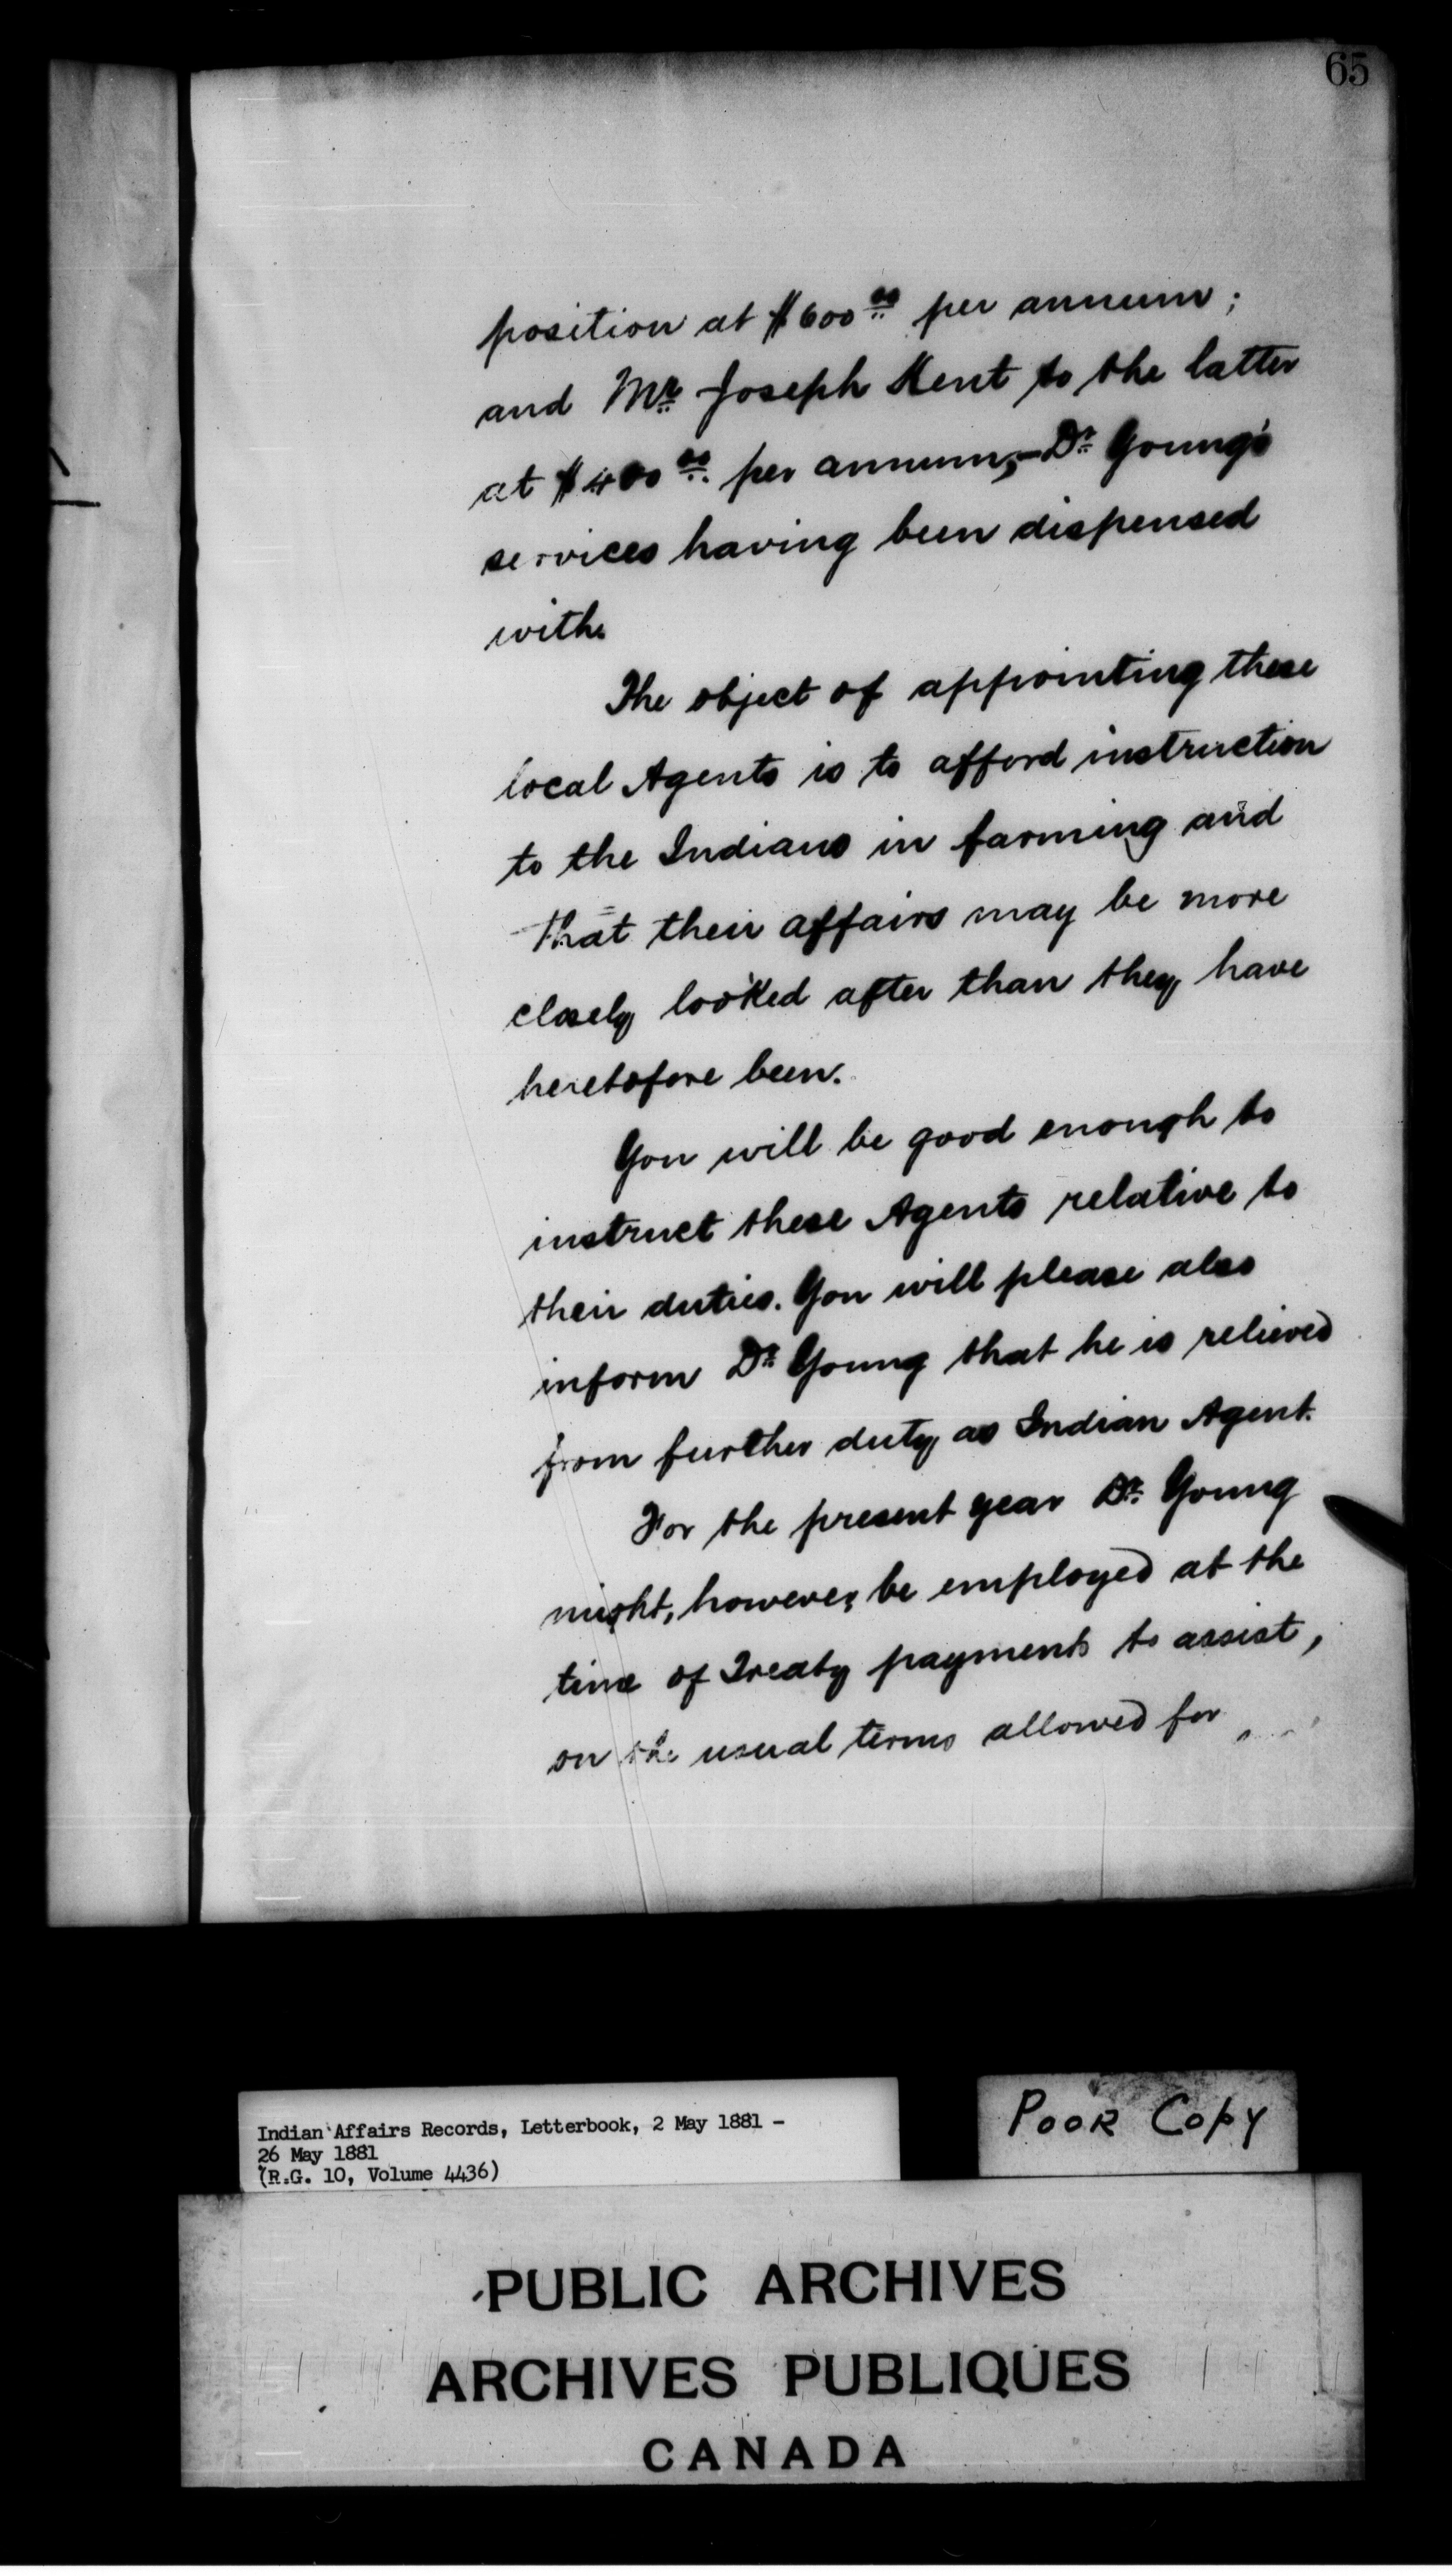 65
position at $600 00 per annum;
and Mr Joseph Kent to the latter
at $400 00 per annum,—Dr Young's
services having been dispensed
with.
The object of appointing these
local Agents is to afford instruction
to the Indians in farming and
that their affairs may be more
closely looked after than they have
heretofore been.
You will be good enough to
instruct these Agents relative to
their duties. You will please also
inform Dr Young that he is relieved
from further duty as Indian Agent.
For the present year Dr Young
might, however, be employed at the
time of Treaty payments to assist,
on the usual terms allowed for
Indian Affairs Records, Letterbook, 2 May 1881 -
26 May 1881
(R.G. 10, Volume 4436)
POOR COPY
PUBLIC ARCHIVES
ARCHIVES PUBLIQUES
CANADA